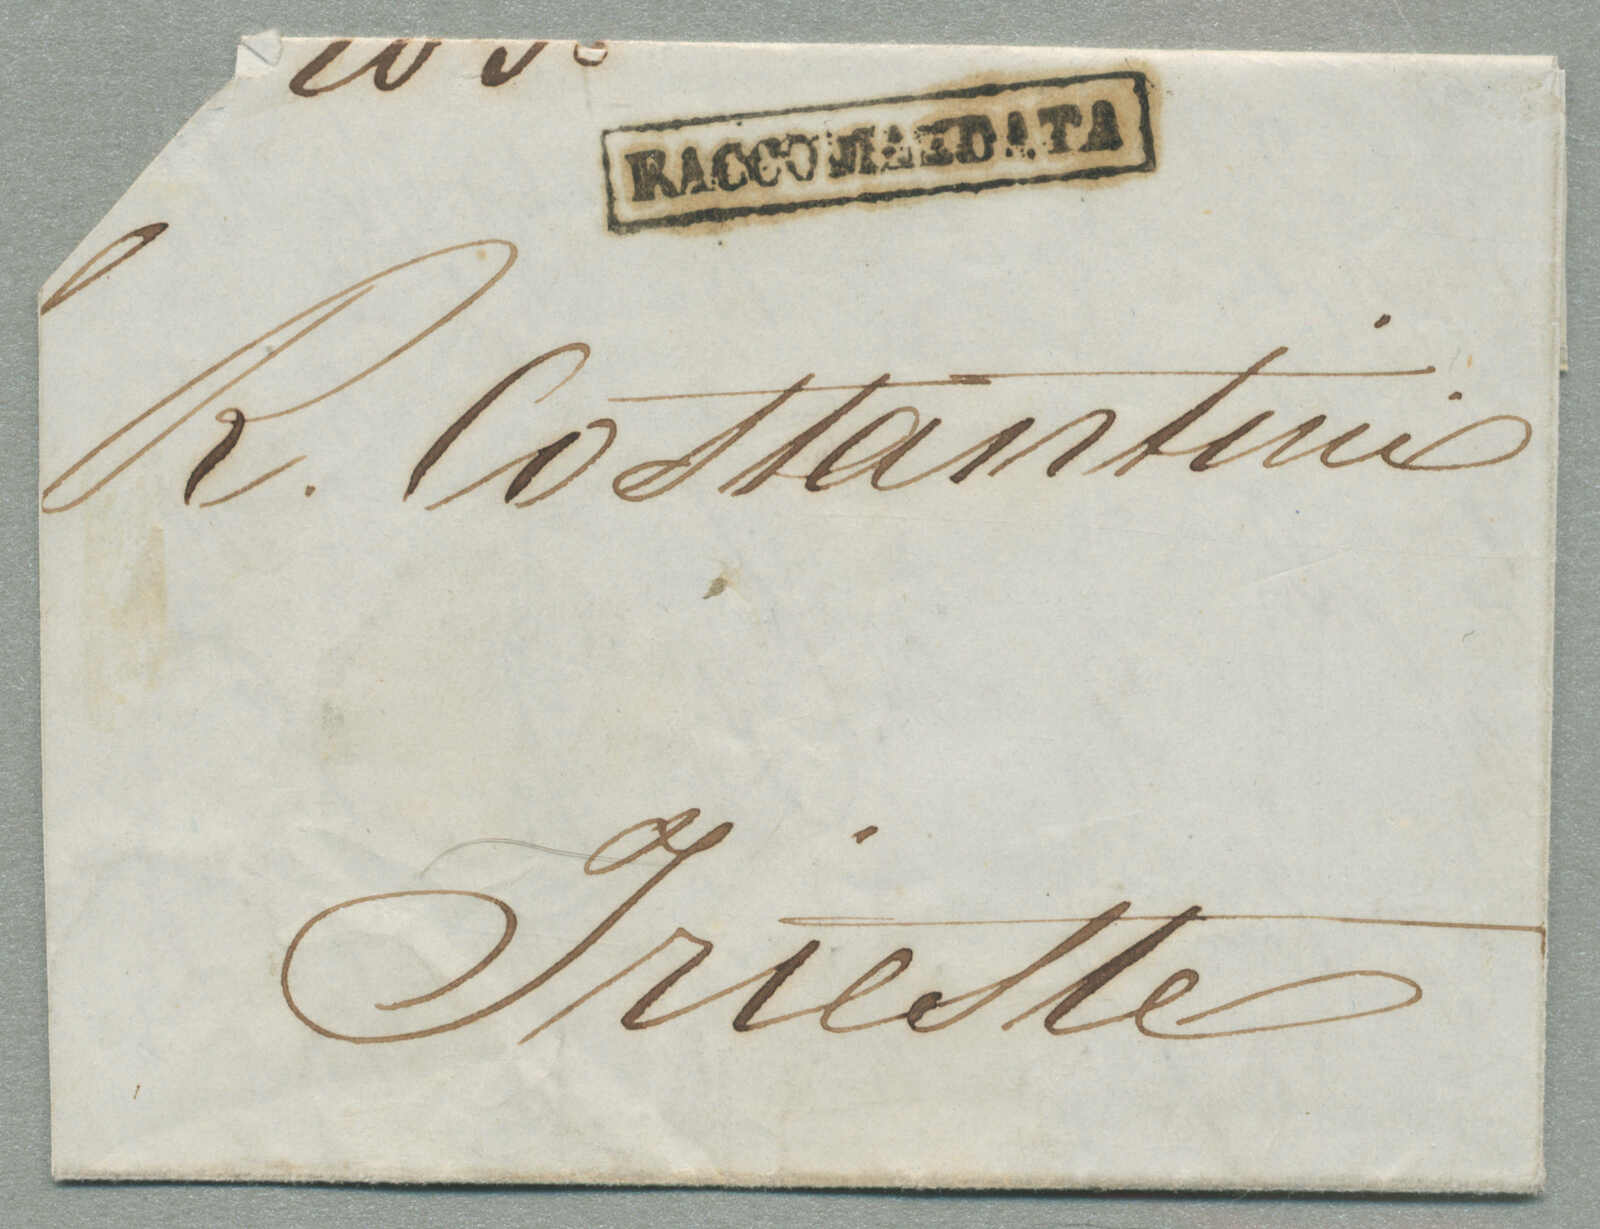 RACCOMANDATA
R. Costantini
Trieste